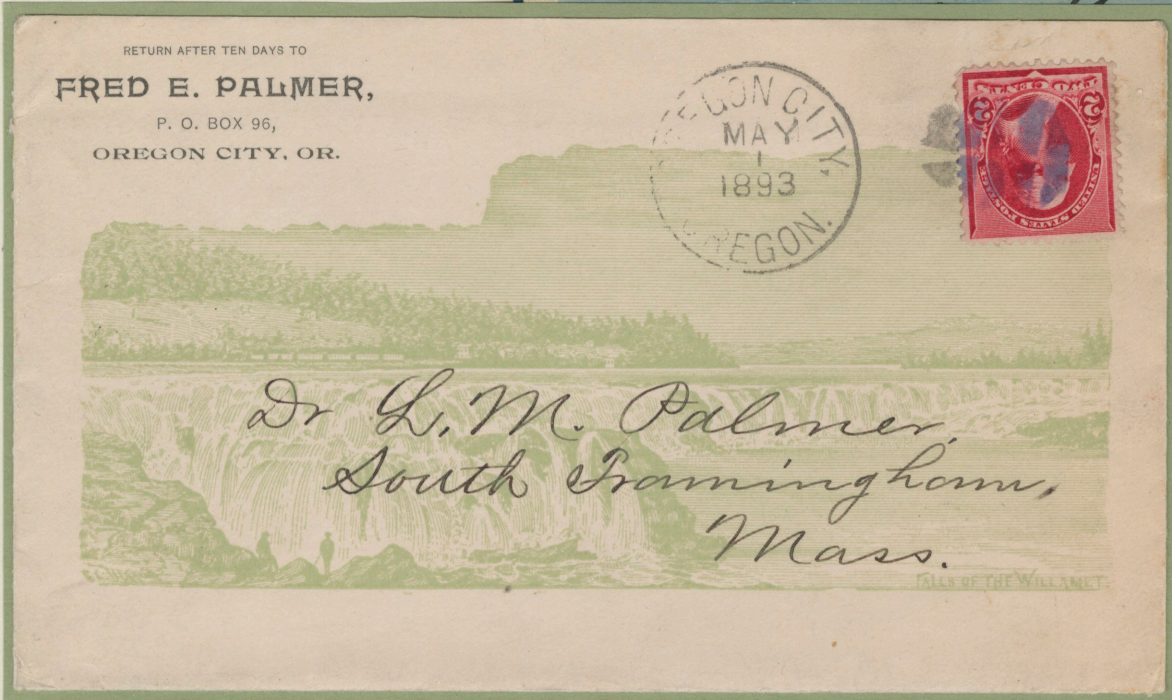 RETURN AFTER TEN DAYS TO
FRED E. PALMER,
P. O. BOX 96,
OREGON CITY, OR.
OREGON CITY,
MAY
1
1893
OREGON.
TWO CENTS
2 2
UNITED STATES POSTAGE
Dr L. M. Palmer,
South Framingham,
Mass.
FALLS OF THE WILLAMET.